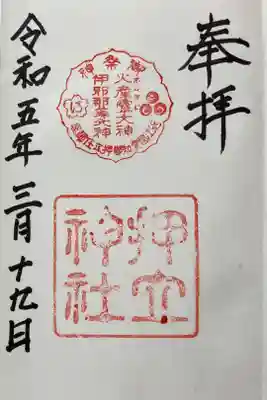 奉拝
御祭神
火産霊大神
伊邪那美大神
押立神社
令和五年三月十九日